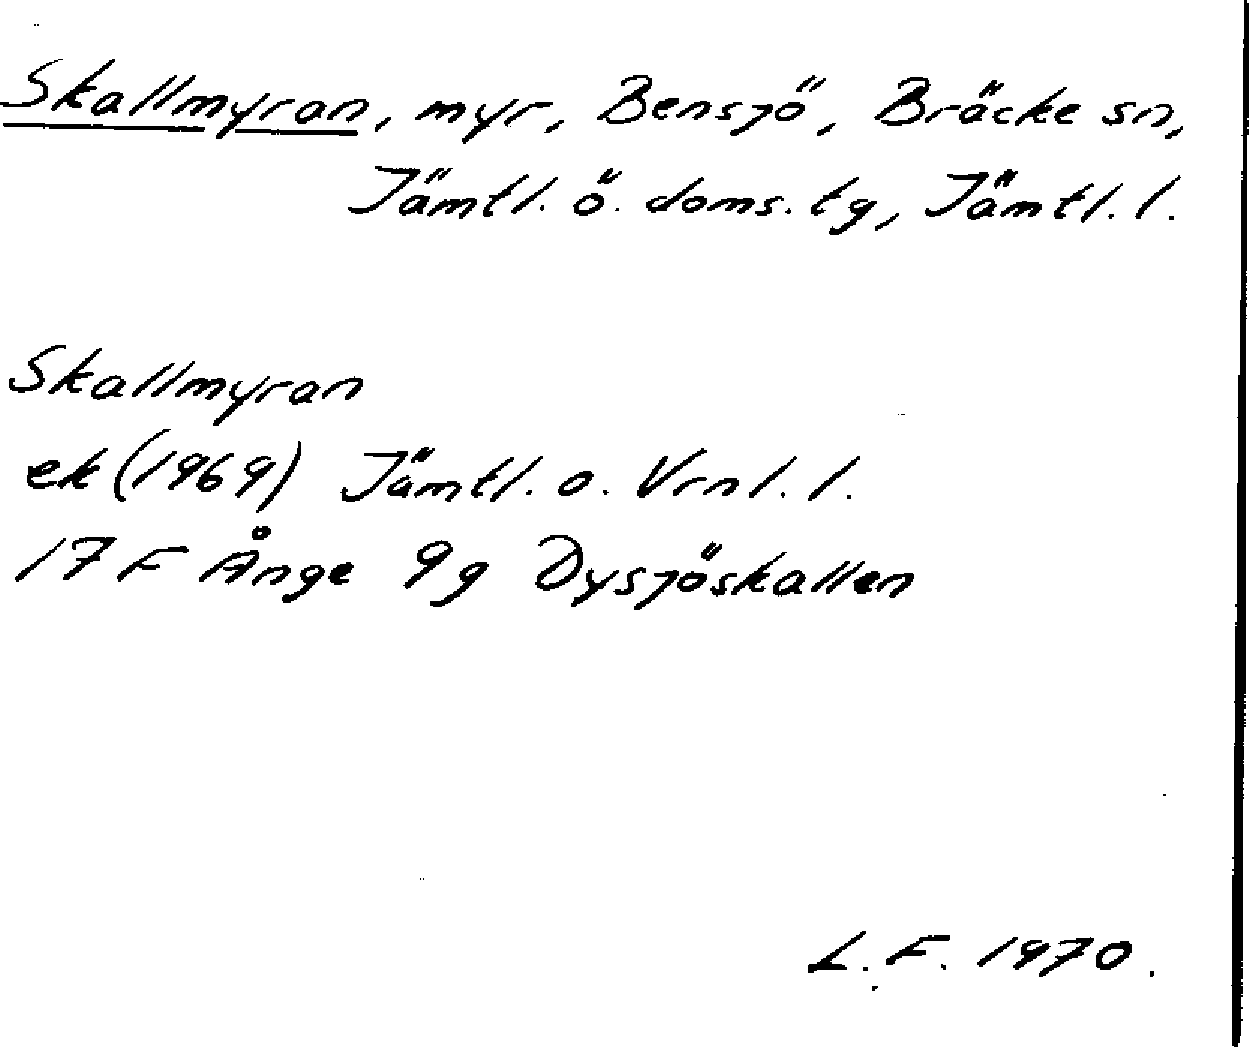 Skallmyran, myr, Bensjö, Bräcke sn,
Jämtl. ö. doms. tg, Jämtl. l.
Skallmyran
ek (1969) Jämtl. o. Vrnl. l.
17 F Ånge 9g Dysjöskallen
L. F. 1970.